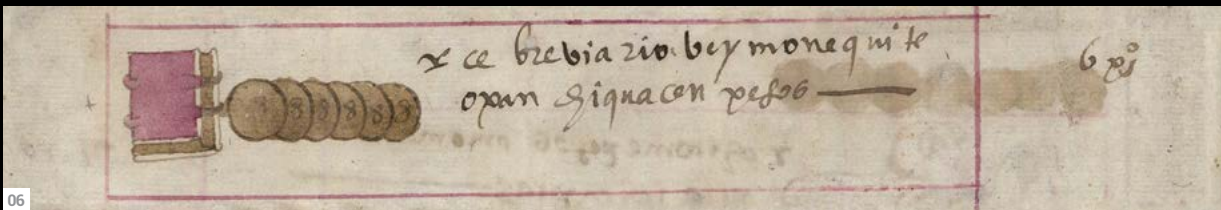 ce breviario. vey monequi te
opan chiquacen pesos
6 pos
06